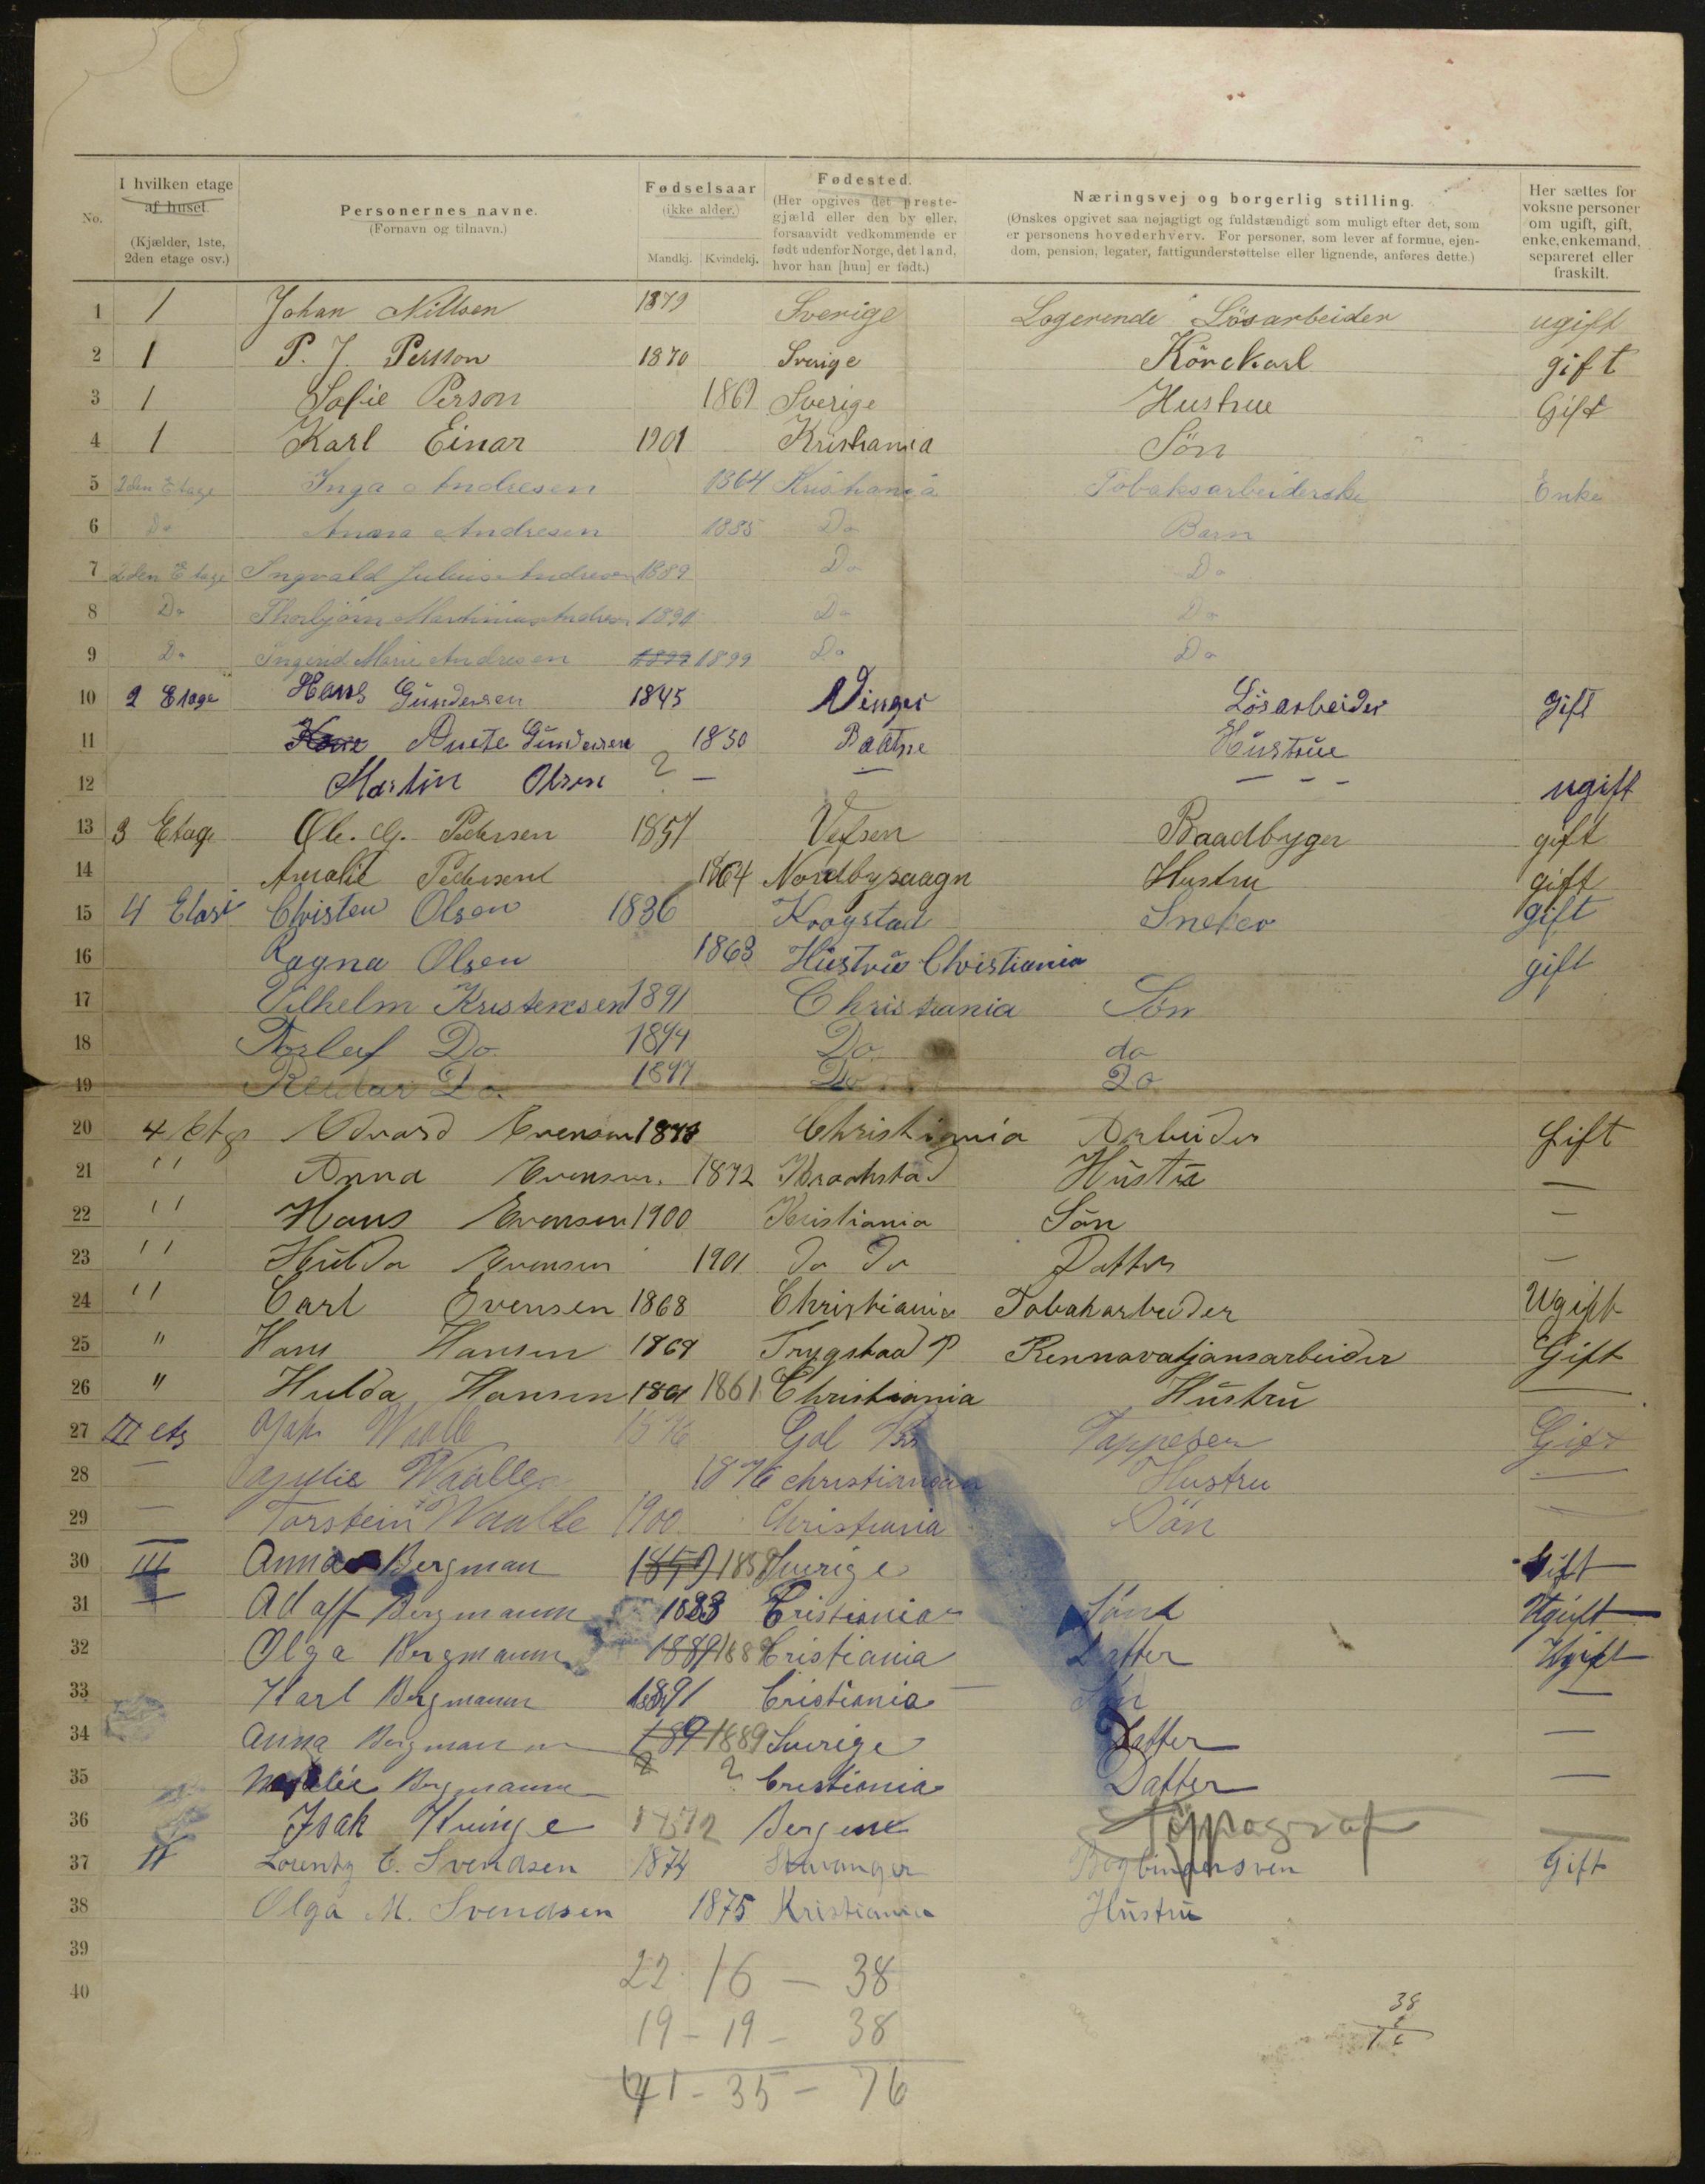 No.
I hvilken etage af huset. (Kjælder, 1ste, 2den etage osv.)
Personernes navne. (Fornavn og tilnavn.)
Fødselsaar (ikke alder.) Mandkj. Kvindekj.
Fødested. (Her opgives det prestegjæld eller den by eller, forsaavidt vedkommende er født udenfor Norge, det land, hvor han [hun] er født.)
Næringsvej og borgerlig stilling. (Ønskes opgivet saa nøjagtigt og fuldstændigt som muligt efter det, som er personens hovederhverv. For personer, som lever af formue, ejendom, pension, legater, fattigunderstøttelse eller lignende, anføres dette.)
Her sættes for voksne personer om ugift, gift, enke, enkemand, separeret eller fraskilt.
1 1 Johan Nillsen 1879 Sverige Logerende Lösarbeider ugift
2 1 P. J. Persson 1870 Sverige Körekarl gift
3 1 Sofie Person 1861 Sverige Hustrue Gift
4 1 Karl Einar 1901 Kristiania Sön
5 2den Etage Inga Andresen 1864 Kristiania Tobaksarbeiderske Enke
6 Do Anna Andresen 1885 Do Barn
7 2den Etage Ingvald Julius Andresen 1889 Do Do
8 Do Thorbjørn Martinius Andresen 1890 Do Do
9 Do Ingerid Marie Andresen 1899 1899 Do Do
10 2 Etage Hans Gündersen 1845 Vinger Lösarbeider gift
11 Anete Gündersen 1850 Baatne Hüstrüe
12 Martin Olsen ? — — — - - ugift
13 3 Etage Ole. G. Pedersen 1857 Vefsen Baadbyger gift
14 Amalie Pedersen 1864 Nordbysaagn Hustru gift
15 4 Etasi Christen Olsen 1836 Krogstad Sneker gift
16 Ragna Olsen 1863 Hüstrü Christiania gift
17 Vilhelm Kristensen 1891 Christiania Søn
18 Torlef Do. 1894 Do. do
19 Reidar Do. 1897 Do Do
20 4 Etg Edvard Evensen 1873 Christiania Arbeider Gift
21 " Anna Evensen. 1872 Kraakstad Hüstrü —
22 " Hans Evensen 1900 Kristiania Sön —
23 " Hülda Evensen 1901 do do Datter —
24 " Carl Evensen 1868 Christiania Tobakarbeider Ugift
25 " Hans Hansen 1869 Trygstad P Rennovatjonsarbeider Gift
26 " Hulda Hansen 1861 1861 Christiania Hüstrü —
27 III etg Waalle 1876 Gol Tappeser Gift
28 — Waalle 1876 christiania Hustru —
29 — Torstein Waalle 1900 Christiania Sön —
30 III Anna Bergman 1859 1859 Sverige Gift
31 — Adolf Bergmann 1883 Cristiania Sön Ugift
32 Olga Bergmann 1889 1889 Cristiania Datter Ugift
33 Karl Bergmann 1891 Cristiania — Sön —
34 Anna Bergmann 189 1889 Sverige Datter —
35 Bergmann ? ? Cristiania Datter —
36 Isak Kvinge 1872 Bergen Typograf —
37 II Lorentz C. Svendsen 1874 Stavanger Bogbindersven Gift
38 Olga M. Svendsen 1875 Kristiania Hüstrü
39
40
22 16 — 38
19 - 19 - 38
41 - 35 - 76
38